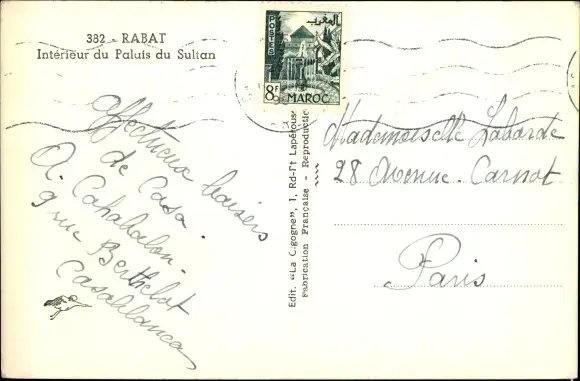 382 - RABAT
Intérieur du Palais du Sultan
affectueux baisers
de Casa.
A. Cahabalon.
9 rue Berthelot
Casablanca
POSTES
المغرب
8F
MAROC
Edit. "La Cigogne", 1, Rd-Pt Lapérouse
Fabrication Française - Reproduction
Mademoiselle Laborde
28 Avenue. Carnot
Paris